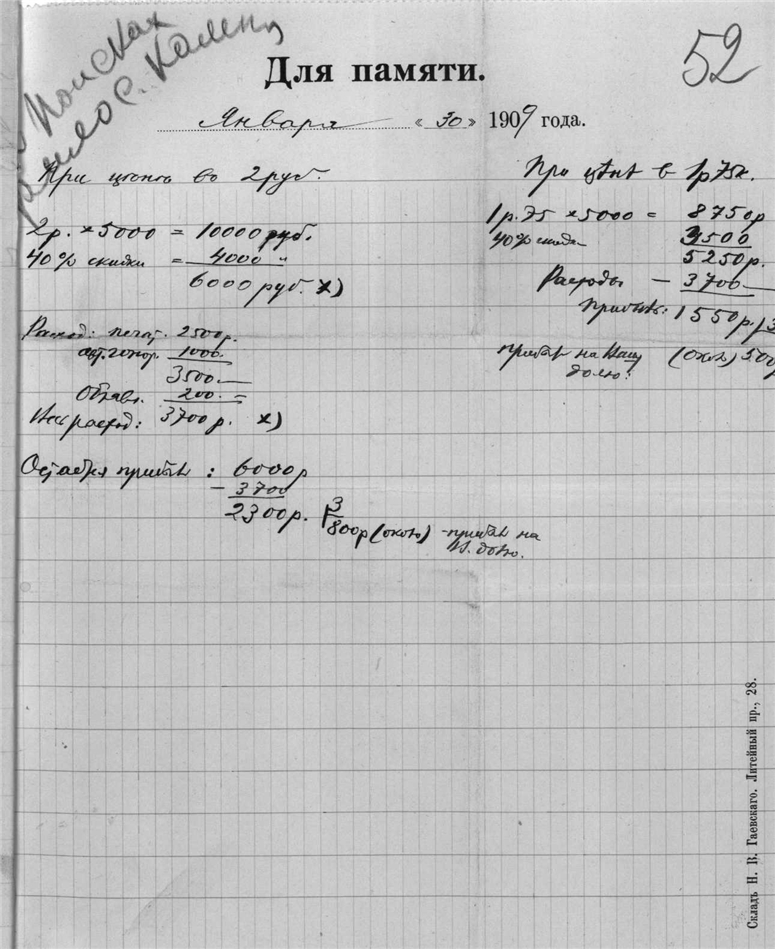 Поисках
52
Для памяти.
Января « 30 » 1909 года.
При цѣнѣ во 2 руб.
2 р. × 5000 = 10000 руб.
40% скидки = 4000 "
6000 руб. ×)
Расход: печат. 2500 р.
авт. гонор. 1000.
3500 —
Объявл. 200. —
Все расход: 3700 р. ×)
Остается прибыль : 6000 р
– 3700
2300 р. | 3
800 р (около) – прибыль на
н. долю.
При цѣнѣ в 1 р 75 к.
1 р. 75 × 5000 = 8750 р
40% скидк 3500
5250 р.
Расходы – 3700 —
Прибыль: 1550 р. / 3
прибыль на нашу (около) 500 р
долю:
Складъ Н. В. Гаевскаго. Литейный пр., 28.